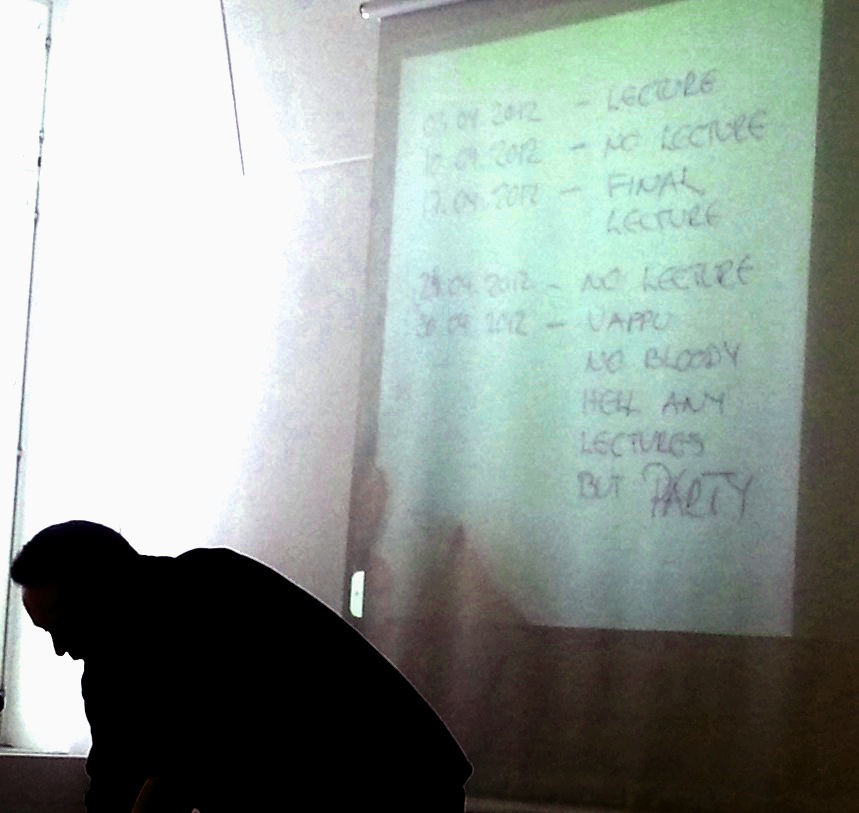 03.04.2012 - LECTURE
10.04.2012 - NO LECTURE
17.04.2012 - FINAL
LECTURE
24.04.2012 - NO LECTURE
30.04.2012 - VAPPU
NO BLOODY
HELL ANY
LECTURES
BUT PARTY